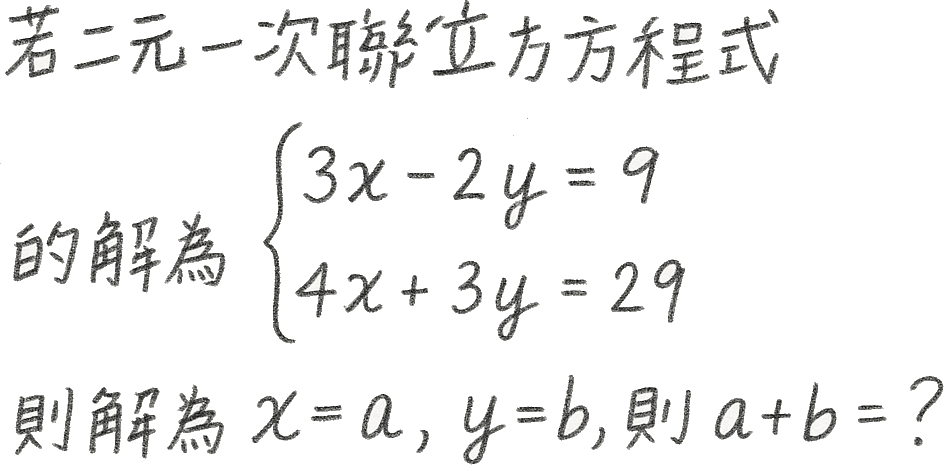 若二元一次聯立方方程式
3x - 2y = 9
的解為
4x + 3y = 29
則解為 x = a, y = b, 則 a + b = ?